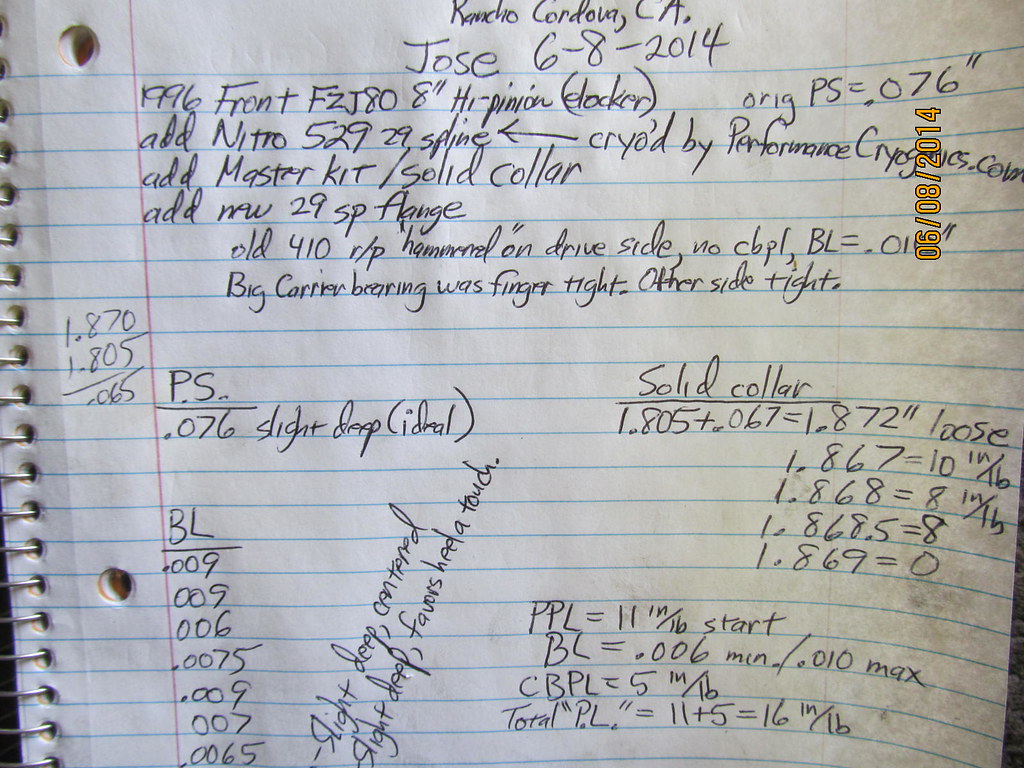 Rancho Cordova, CA.
Jose 6-8-2014
1996 Front FZJ80 8" Hi-pinion (elocker) orig PS=.076"
add Nitro 529 29 spline ← cryo'd by PerformanceCryogenics.com
add Master kit/solid collar
add new 29 sp flange
old 410 r/p "hammered" on drive side, no cbpl, BL=
Big Carrier bearing was finger tight. Other side tight.
06/08/2014
1.870
1.805
.065
P.S.
.076 slight deep (ideal)
Solid collar
1.805+.067=1.872" loose
1.867=10 in/lb
1.868=8 in/lb
1.868.5=8
1.869=0
BL
.009
009
006
.0075
.009
007
.0065
-Slight deep, centered
-Slight deep, favors heel a touch.
PPL=11 in/lb start
BL=.006 min./.010 max
CBPL=5 in/lb
Total "P.L."=11+5=16 in/lb